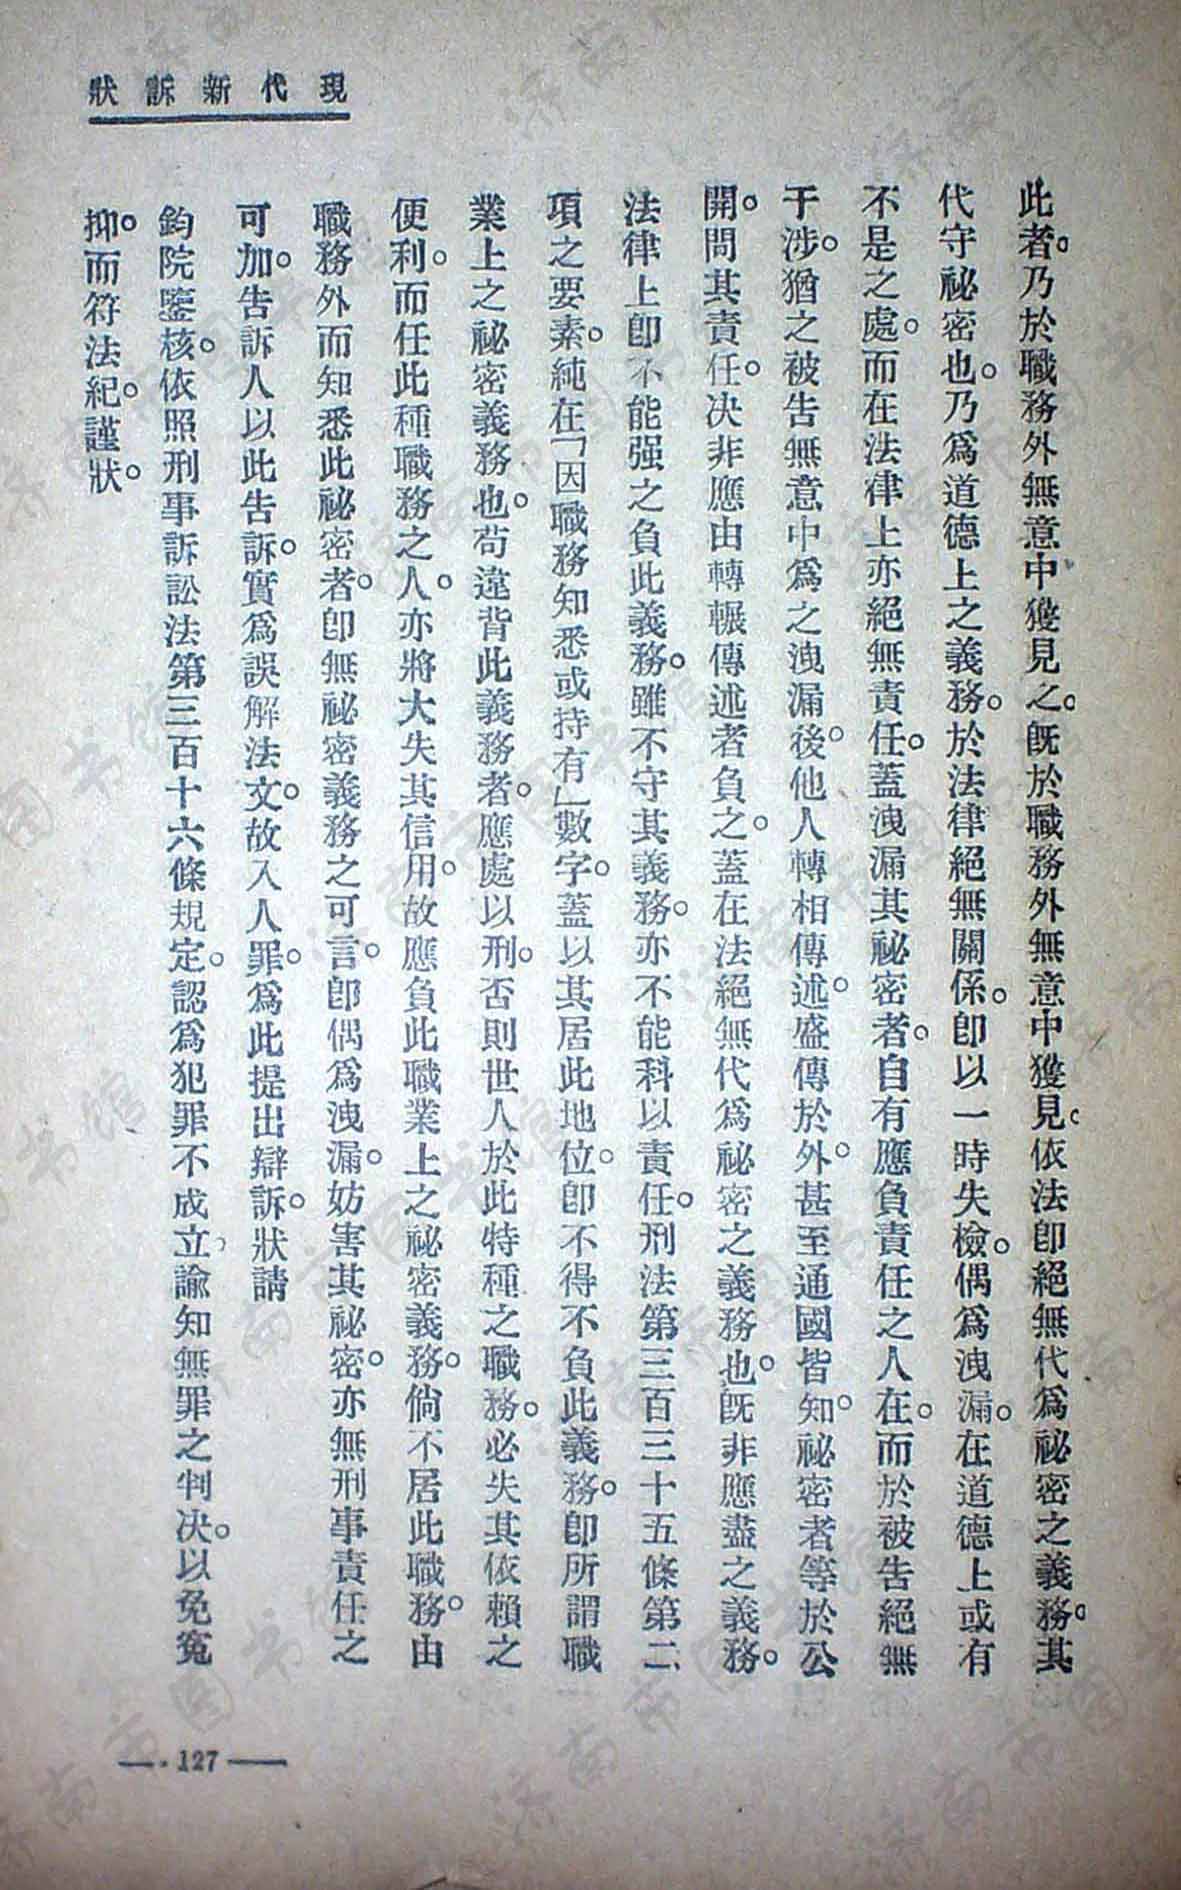 現代新訴狀
此者。乃於職務外無意中獲見之。旣於職務外無意中獲見。依法卽絕無代爲祕密之義務。其
代守祕密也。乃爲道德上之義務。於法律絕無關係。卽以一時失檢。偶爲洩漏。在道德上或有
不是之處。而在法律上亦絕無責任。蓋洩漏其祕密者。自有應負責任之人在。而於被告絕無
干涉。猶之被告無意中爲之洩漏後。他人轉相傳述。盛傳於外。甚至通國皆知。祕密者等於公
開。問其責任。决非應由轉輾傳述者負之。蓋在法絕無代爲祕密之義務也。旣非應盡之義務。
法律上卽不能强之負此義務。雖不守其義務。亦不能科以責任。刑法第三百三十五條第二
項之要素。純在「因職務知悉或持有」數字。蓋以其居此地位。卽不得不負此義務。卽所謂職
業上之祕密義務也。苟違背此義務者。應處以刑。否則世人於此特種之職務。必失其依賴之
便利。而任此種職務之人。亦將大失其信用。故應負此職業上之祕密義務。倘不居此職務。由
職務外而知悉此祕密者。卽無祕密義務之可言。卽偶爲洩漏。妨害其祕密。亦無刑事責任之
可加。告訴人以此告訴。實爲誤解法文。故入人罪。爲此提出辯訴。狀請
鈞院鑒核。依照刑事訴訟法第三百十六條規定。認爲犯罪不成立。諭知無罪之判决。以免冤
抑。而符法紀。謹狀。
— 127 —
济南市图书馆